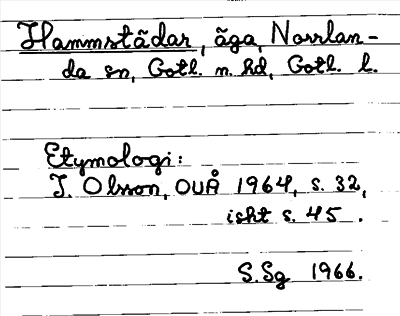 Hammstãdar, ãga, Norrlan-
da sn, Gotl. n. hd, Gotl. l.
Etymologi:
I. Olsson, OUÅ 1964, s. 32,
isht s. 45.
S.Sg. 1966.